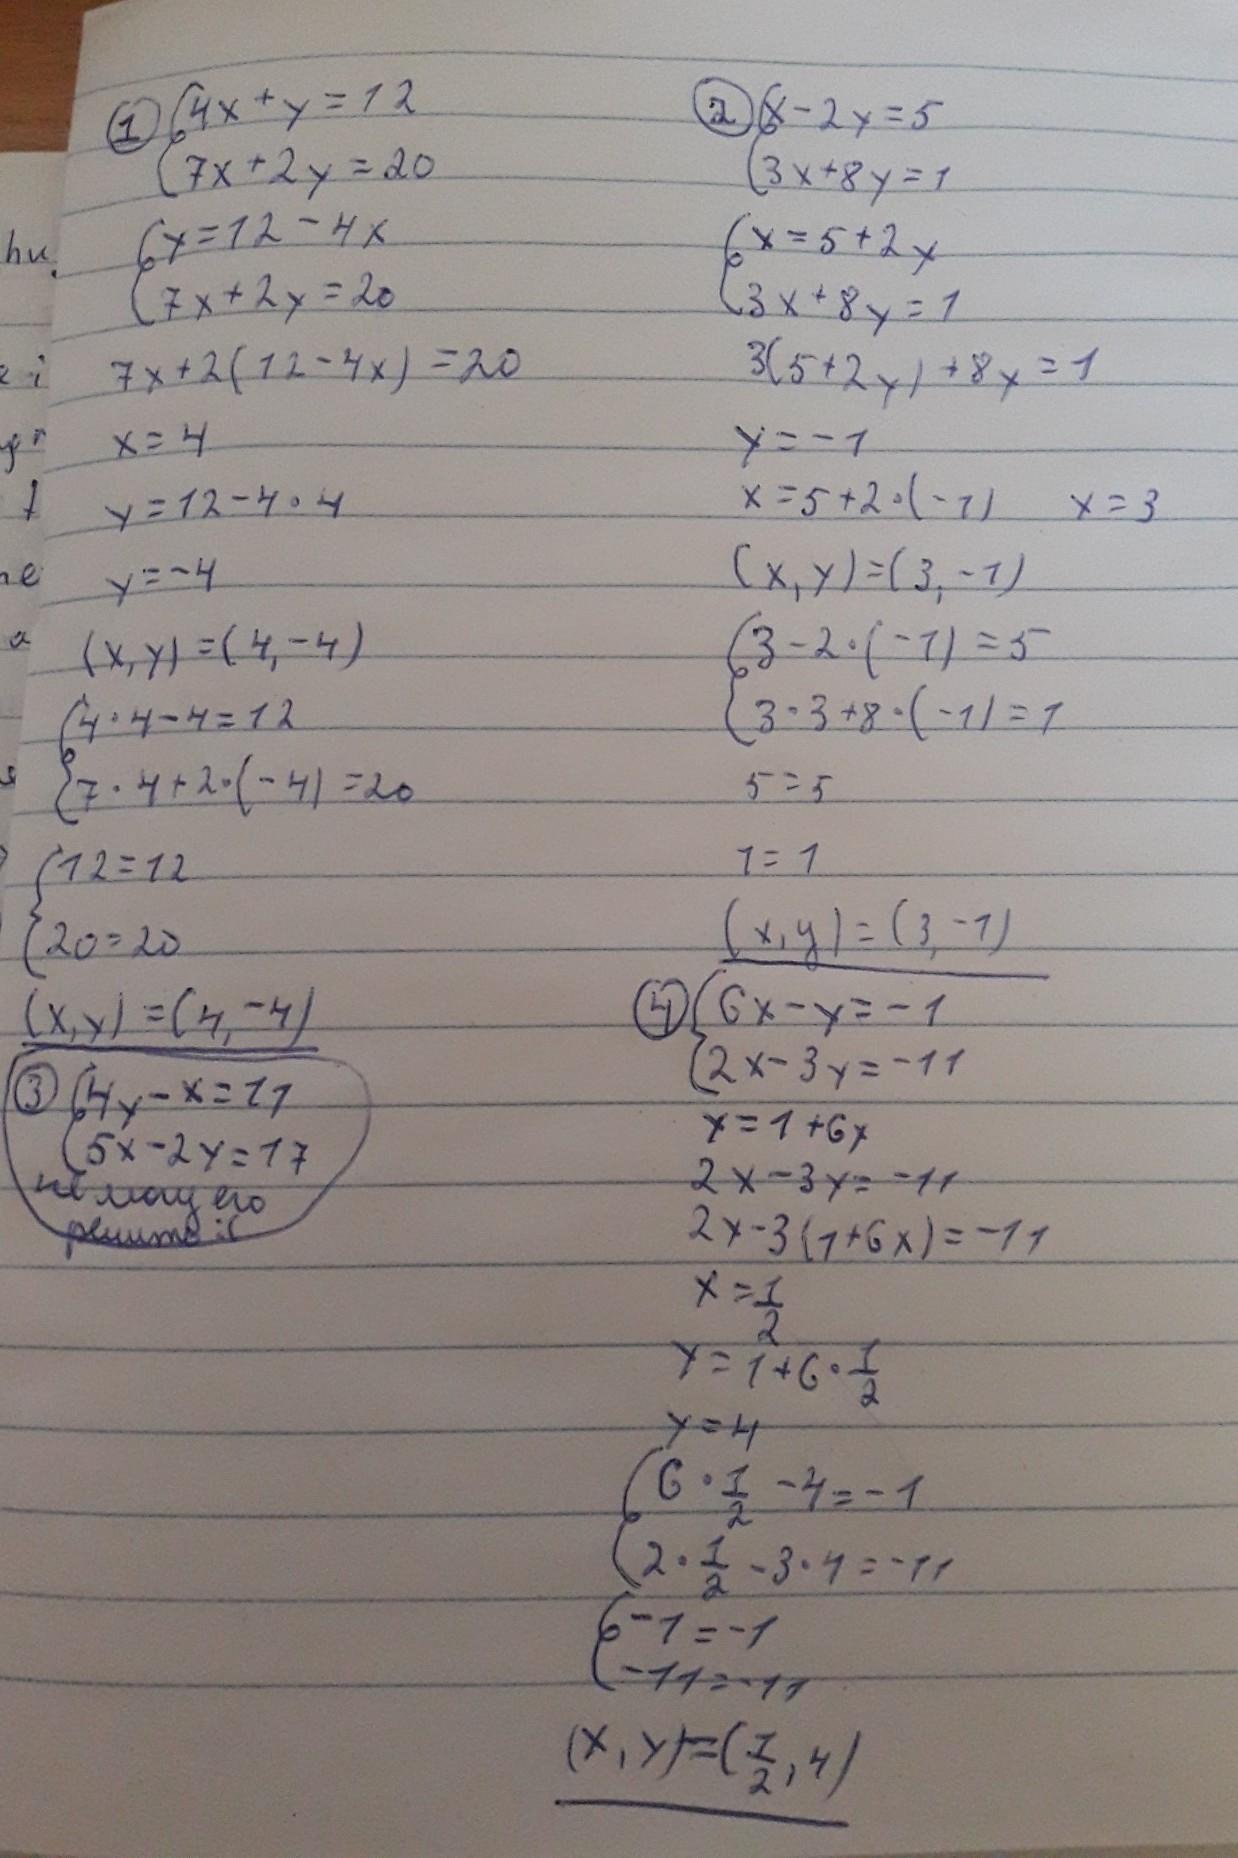 ① 4x+y=12
7x+2y=20
y=12-4x
7x+2y=20
7x+2(12-4x)=20
x=4
y=12-4·4
y=-4
(x,y)=(4,-4)
4·4-4=12
7·4+2·(-4)=20
12=12
20=20
(x,y)=(4,-4)
③ 4y-x=11
5x-2y=17
не могу его
решить
② x-2y=5
3x+8y=1
x=5+2y
3x+8y=1
3(5+2y)+8y=1
y=-1
x=5+2·(-1) x=3
(x,y)=(3,-1)
3-2·(-1)=5
3·3+8·(-1)=1
5=5
1=1
(x,y)=(3,-1)
④ 6x-y=-1
2x-3y=-11
y=1+6x
2x-3y=-11
2x-3(1+6x)=-11
x=1/2
y=1+6·1/2
y=4
6·1/2-4=-1
2·1/2-3·4=-11
-1=-1
-11=-11
(x,y)=(1/2,4)